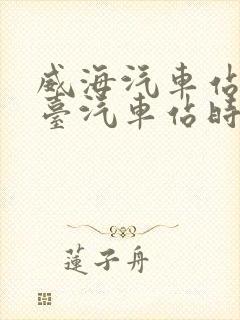 威海汽車佔
臺汽車佔時
蓮子舟